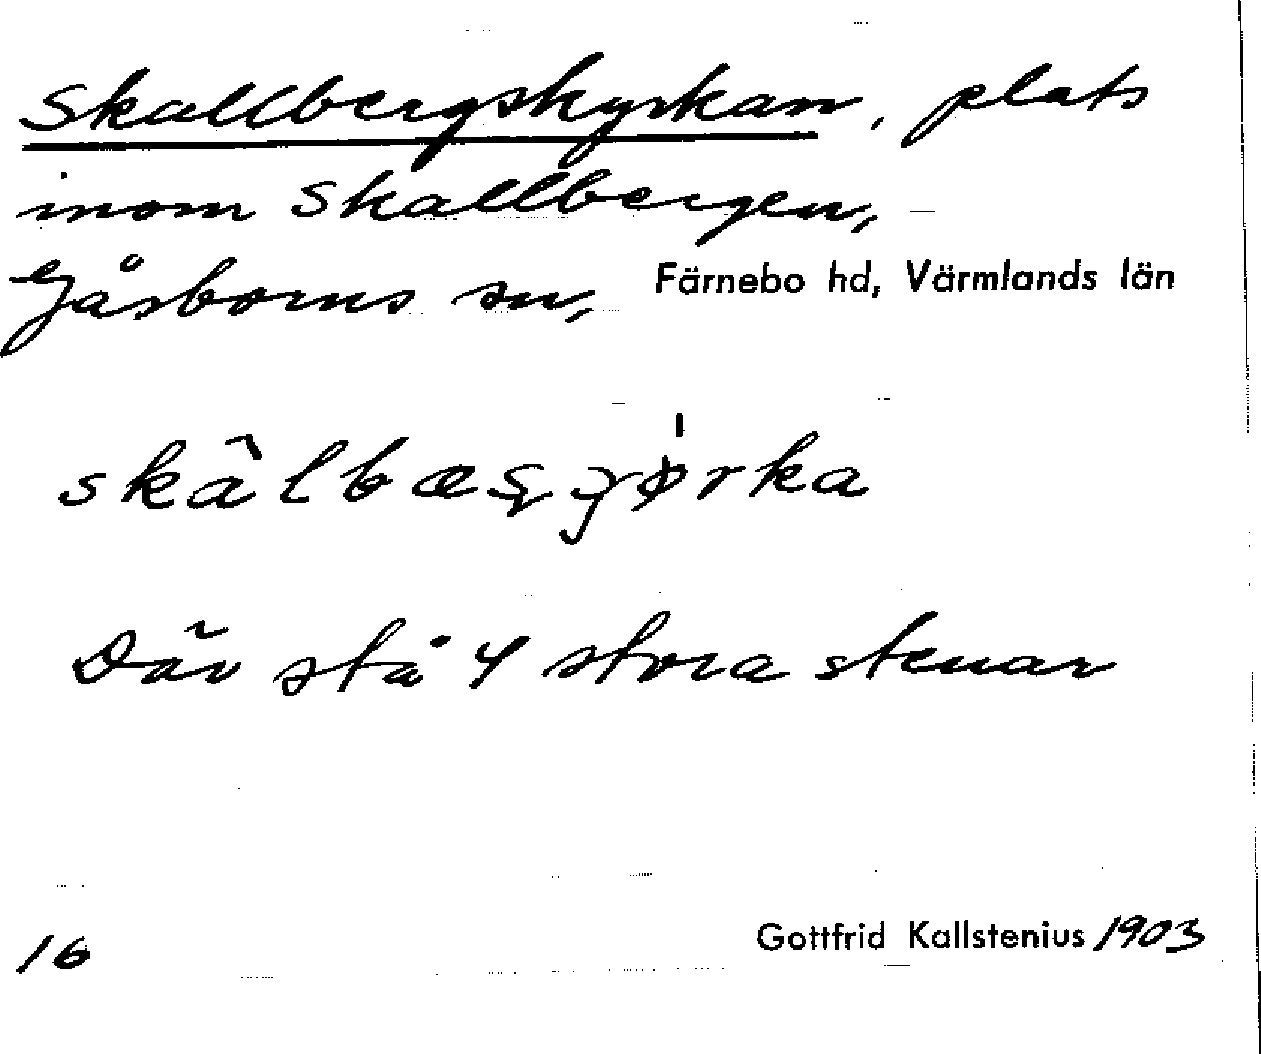 Skallbergskyrkan, plats
inom Skallbergen,
Gåsborns sn, Färnebo hd, Värmlands län
skâlbæşɟø̍rka
Där stå 4 stora stenar
16 Gottfrid Kallstenius 1903